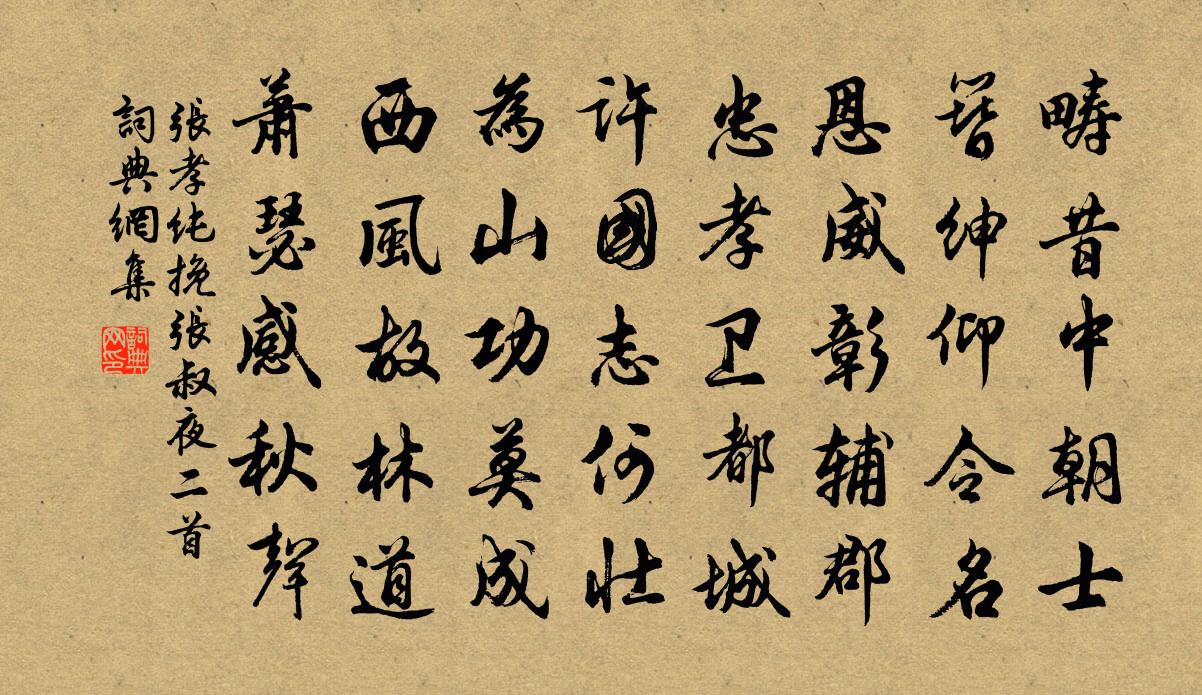 疇昔中朝士
簪紳仰令名
恩威彰辅郡
忠孝卫都城
許國志何壯
為山功莫成
西風故林道
蕭瑟感秋聲
張孝纯挽張叔夜二首
詞典網集
詞典
网印